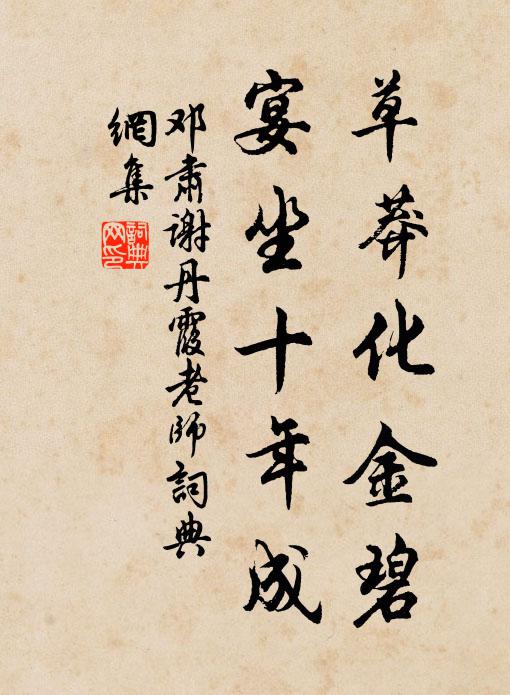 草莽化金碧
宴坐十年成
邓肃谢丹霞老師詞典
網集
詞典
网印